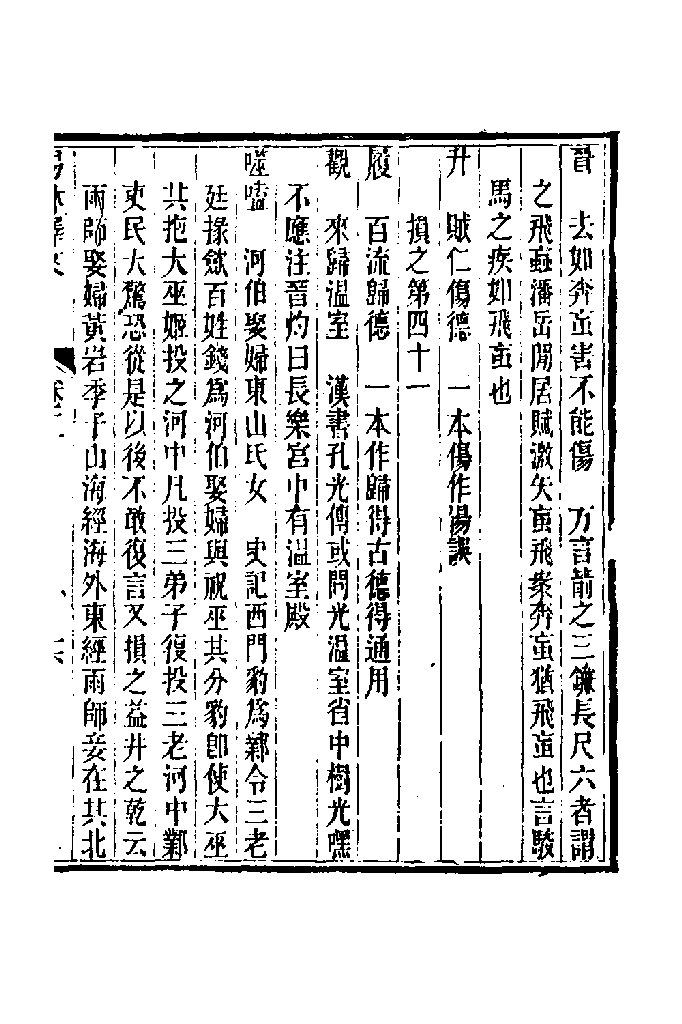 晉　去如奔䖟害不能傷　方言箭之三鐮長尺六者謂
之飛䖟潘岳閒居賦激矢䖟飛衆奔䖟猶飛䖟也言駿
馬之疾如飛䖟也
升　賊仁傷德　一本傷作湯誤
損之第四十一
履　百流歸德　一本作歸得古德得通用
觀　來歸溫室　漢書孔光傳或問光溫室省中樹光嘿
不應注晉灼曰長樂宮中有溫室殿
噬嗑　河伯娶婦東山氏女　史記西門豹爲鄴令三老
廷掾斂百姓錢爲河伯娶婦與祝巫其分豹卽使大巫
共抱大巫嫗投之河中凡投三弟子復投三老河中鄴
吏民大驚恐從是以後不敢復言又損之益井之乾云
雨師娶婦黃岩季子山海經海外東經雨師妾在其北
易林釋文　卷二　十六